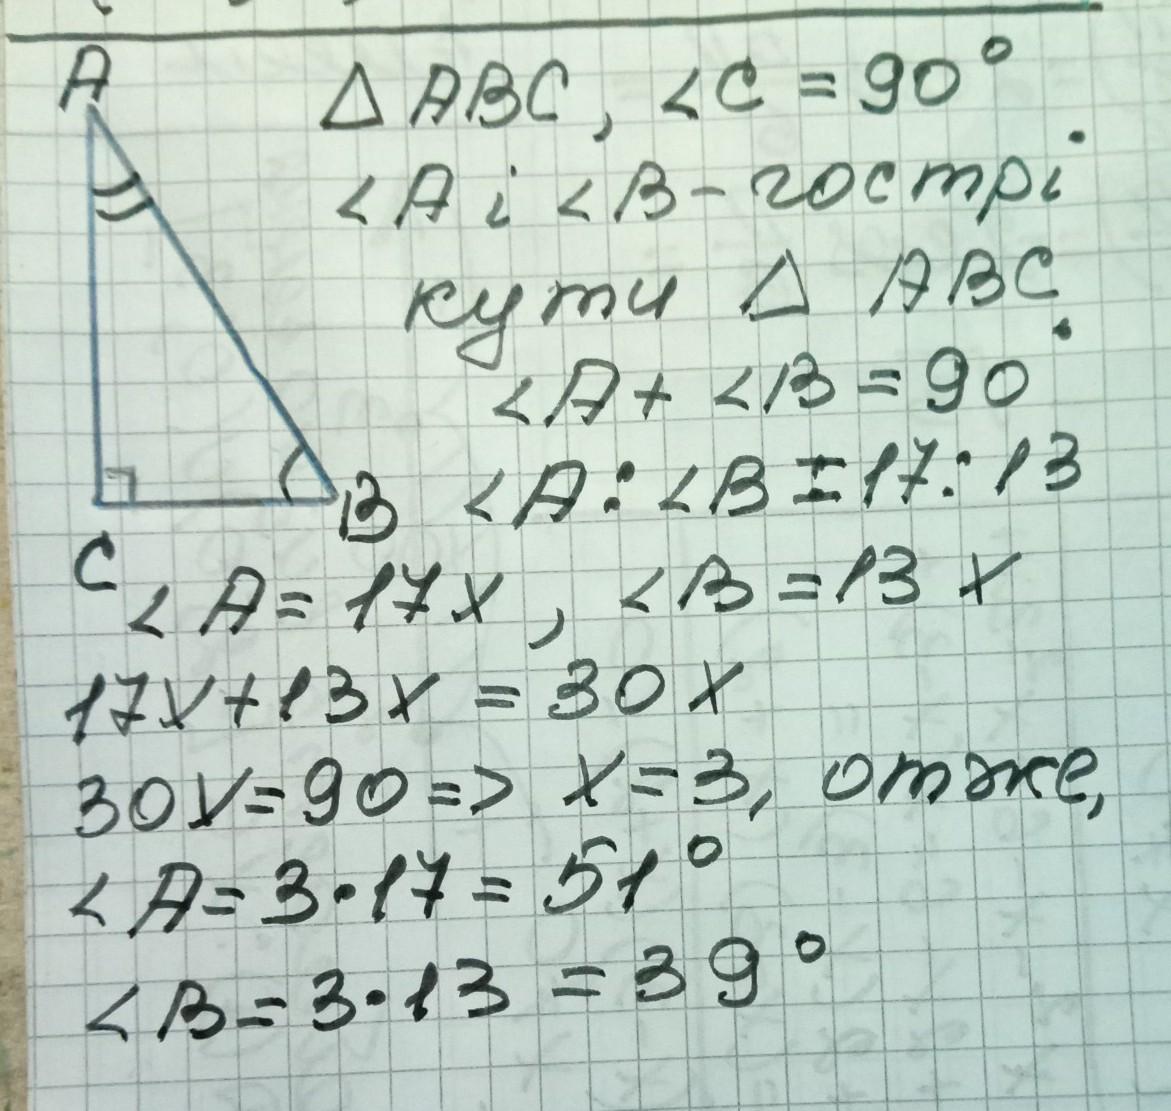 A
△ ABC, ∠C = 90°
∠A і ∠B - гострі
кути △ ABC
∠A + ∠B = 90°
∠A : ∠B = 17 : 13
B
C
∠A = 17x, ∠B = 13x
17x + 13x = 30x
30x = 90 => x = 3, отже,
∠A = 3·17 = 51°
∠B = 3·13 = 39°